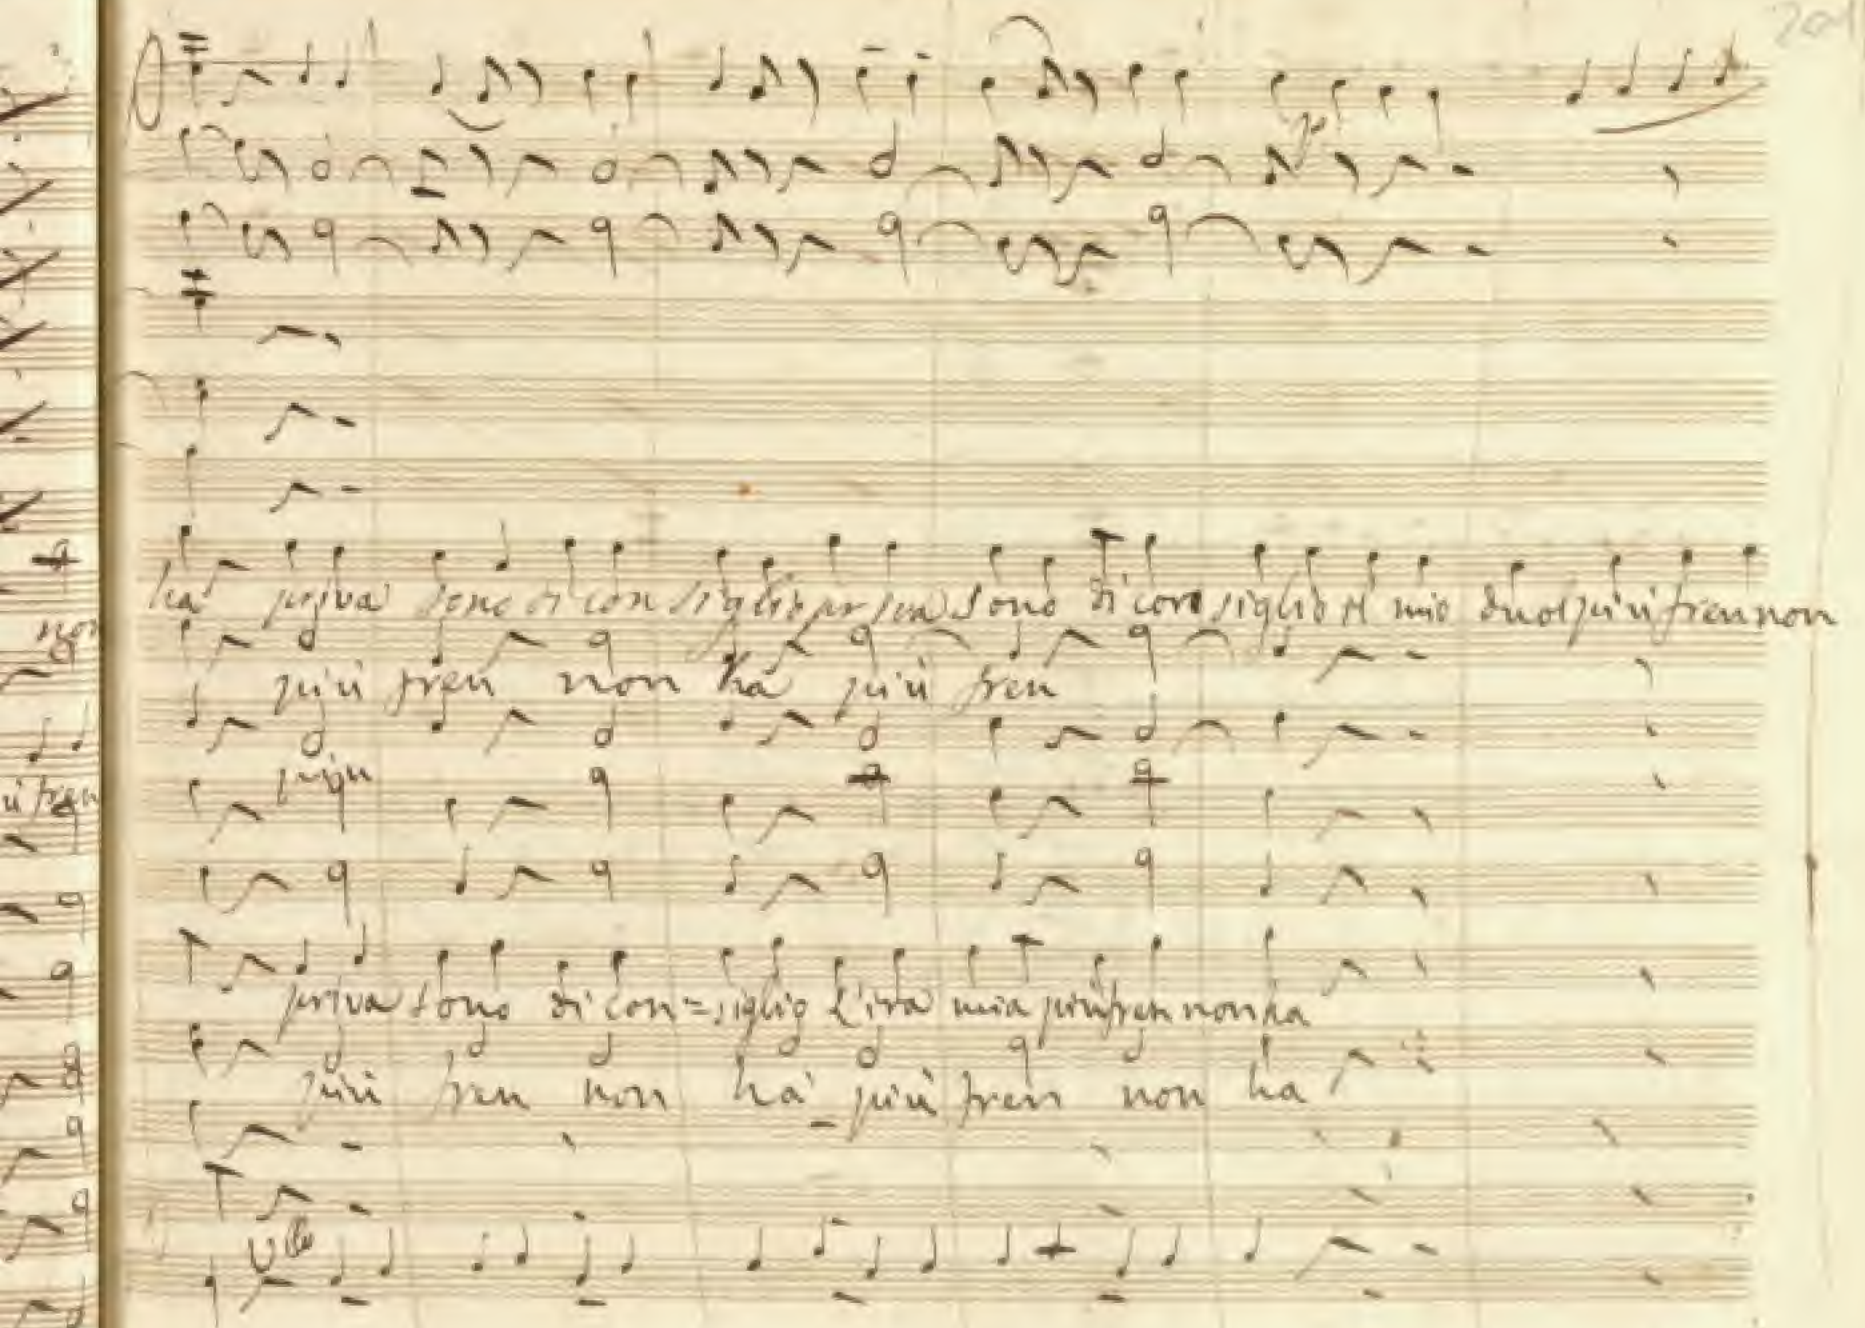 201
p
ha priva sono di con siglio priva sono di con siglio il mio duol più fren non
non
più fren non ha più fren
più
ù fren
priva sono di con=siglio l'ira mia più fren non ha
più fren non ha più fren non ha
Vlle